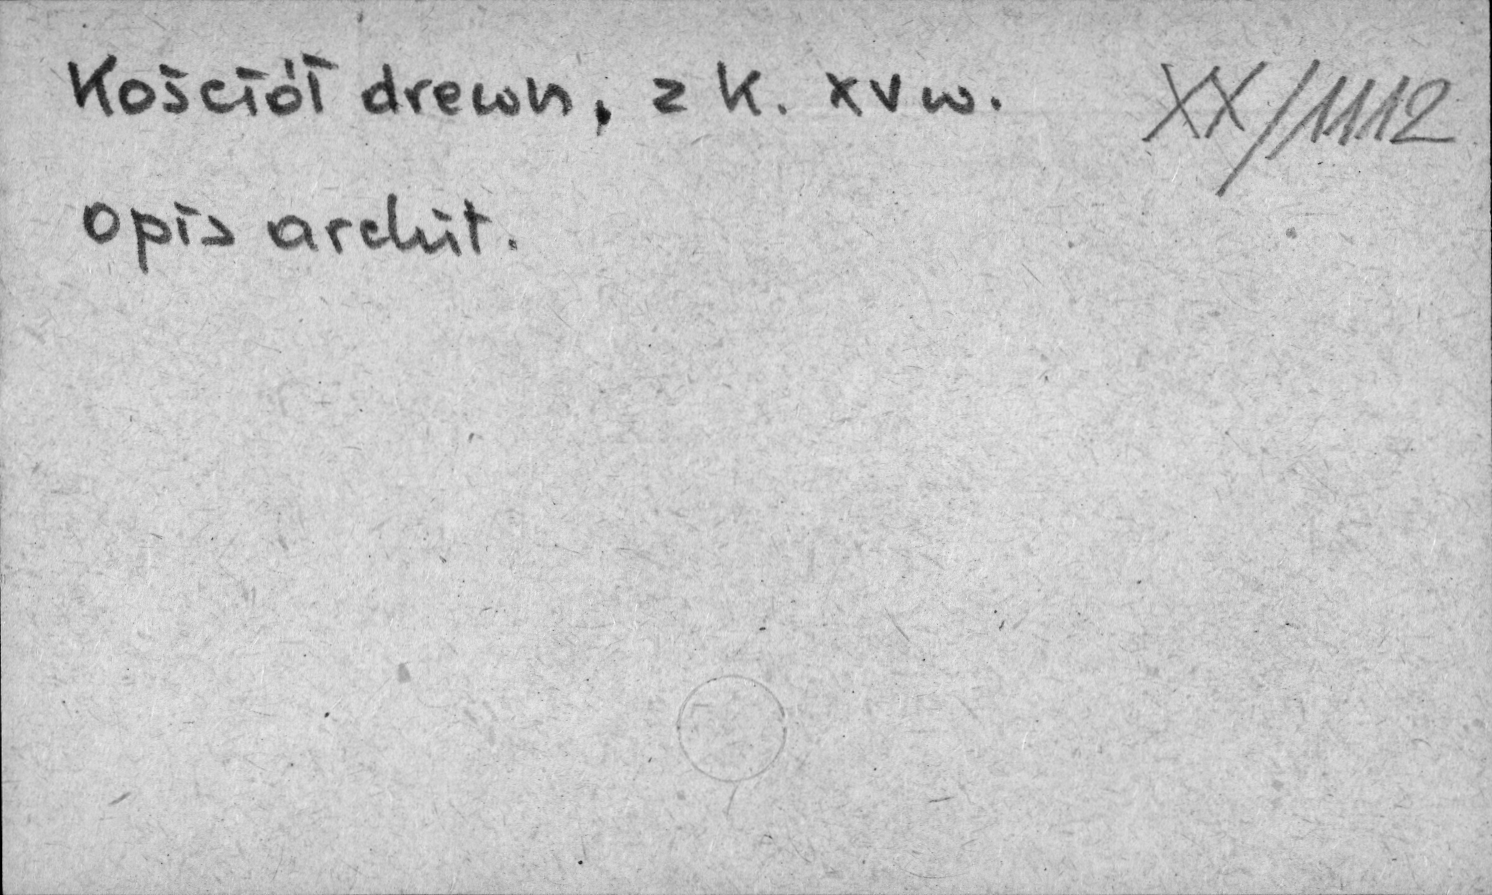 Kościół drewn, z k. XV w. XX/1112
opis archit.